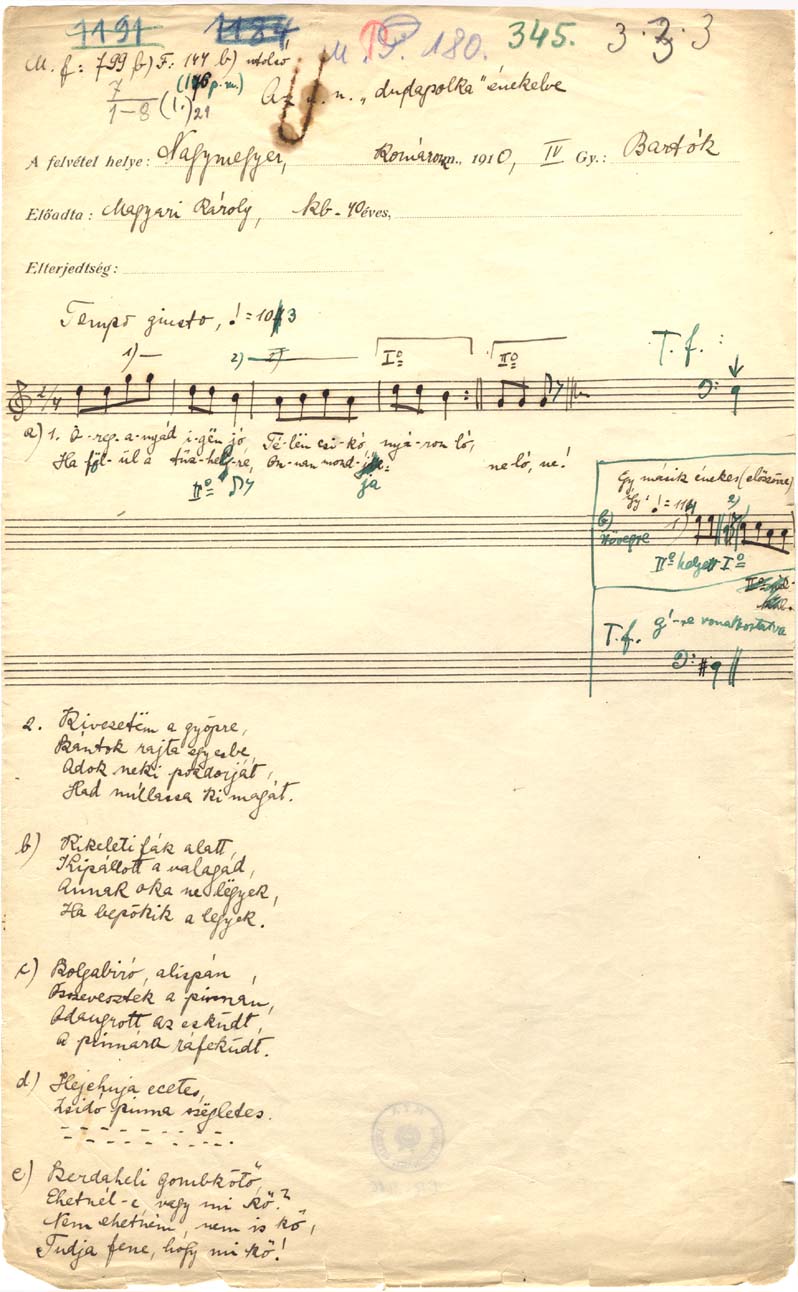 1191 1184 M. P. 180. 345. 3.2.3
M. f: 799 b) F: 144 b) utolsó
7 (176 p. m.) Az u. n. „dudapolka" énekelve
1–8 (1.) 21
A felvétel helye: Nagymegyer, Komárom m., 1910, IV Gy.: Bartók
Előadta: Magyari Károly, kb. 40 éves,
Elterjedtség:
Tempo giusto, = 103
1) 2) Iº IIº T. f.:
2/4
a) 1. Ö-reg a-nyád i-gën jó Té-lën csi-kó nyá-ron ló,
Ha föl-ül a tűz-hely-re, On-nan mond-ja: ne ló, ne!
IIº ja
Gy másik énekes (előszőre)
b)
szövegre 1) 2)
IIº helyett Iº
T. f. g'-re vonatkoztatva
2. Kivezetëm a gyöpre,
Rántok rajta egyesbe,
Adok neki pozdorját,
Had múllassa ki magát.
b) Kikeleti fák alatt,
Kipállott a valagád,
Annak oka ne lëgyek,
Ha bepökik a legyek.
c) Bolgabiró, alispán,
Öszevesztek a pinnán,
Odaugrott az esküdt,
A pinnára ráfeküdt.
d) Hejehuja ecetes,
Zsidó pinna szëgletes.
e) Serdaheli gombkötő,
Ehetnél-e, vagy mi kő?
Nem ehetném, nem is kő,
Tudja fene, hogy mi kő!